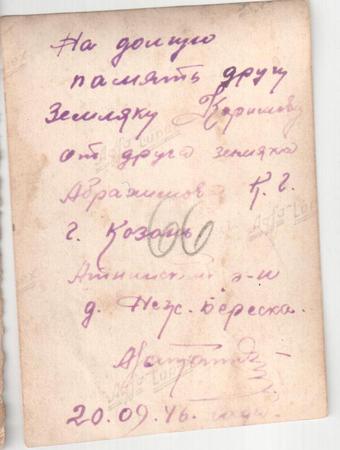 На долгую
память другу
Земляку Каримову
от друга земляка
Абрахимова К. Г.
г. Козань
Атнинский р-н
д. Береска.
20.09.46. года.
66
Agfa-Lupex